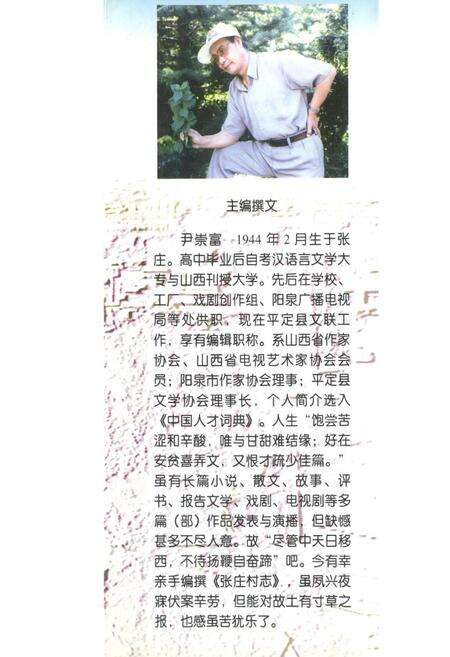 主编撰文
尹崇富 1944 年 2 月生于张
庄。高中毕业后自考汉语言文学大
专与山西刊授大学。先后在学校、
工厂、戏剧创作组、阳泉广播电视
局等处供职，现在平定县文联工
作，享有编辑职称。系山西省作家
协会、山西省电视艺术家协会会
员；阳泉市作家协会理事；平定县
文学协会理事长，个人简介选入
《中国人才词典》。人生“饱尝苦
涩和辛酸，唯与甘甜难结缘；好在
安贫喜弄文，又恨才疏少佳篇。”
虽有长篇小说、散文、故事、评
书、报告文学、戏剧、电视剧等多
篇（部）作品发表与演播，但缺憾
甚多不尽人意。故“尽管中天日移
西，不待扬鞭自奋蹄”吧。今有幸
亲手编撰《张庄村志》，虽夙兴夜
寐伏案辛劳，但能对故土有寸草之
报，也感虽苦犹乐了。